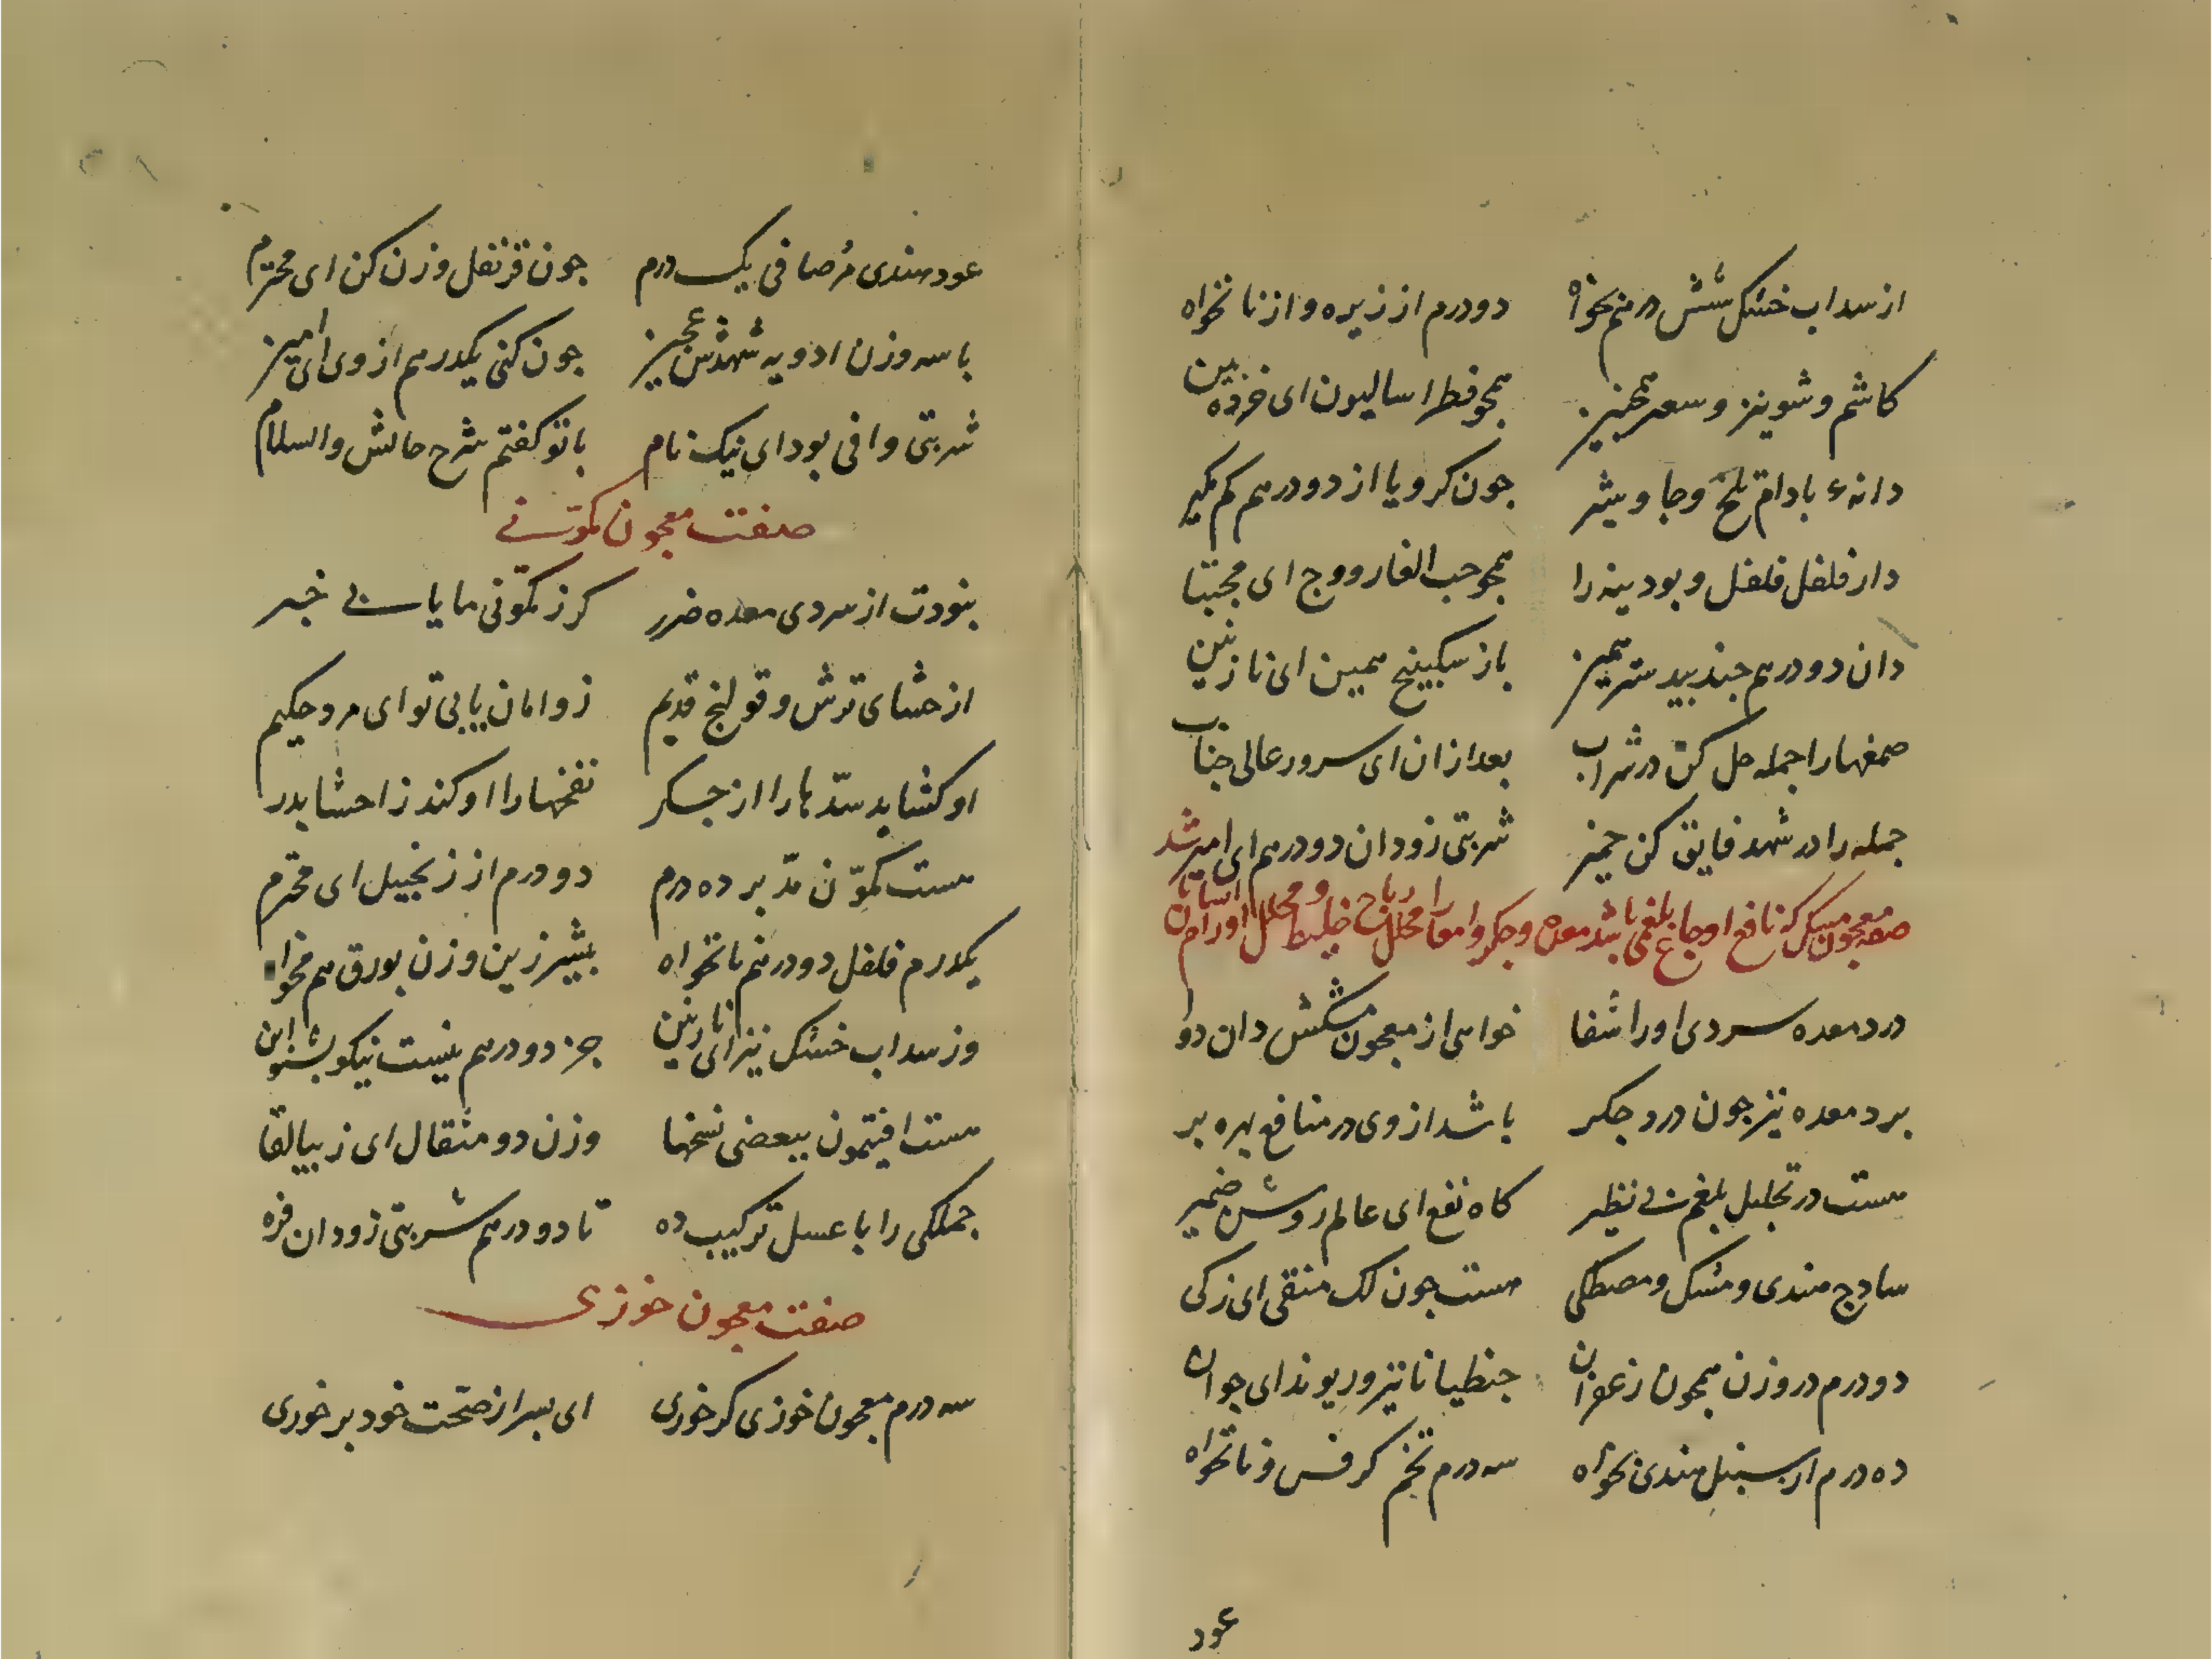 از سداب خشک شش درهم بخواه دو درم از زیره و از نانخواه
کاشم و شونیز و سعتر همچنیز همچو فطراسالیون ای خرده بین
دانهء بادام تلخ و جاوشیر جون کرویا از دو درهم کم مکیر
دار فلفل فلفل و بودینه را همچو حب الغار و وج ای مجتبا
دان دو درهم جندبیدستر همیز باز سکبینج همین ای نازنین
صمغهارا جمله حل کن در شراب بعد ازان ای سرور عالی جناب
جمله را در شهد فایق کن خمیز شربتی زو دان دو درهم ای امیر
صفه معجون مسکی که نافع اوجاع بلغمی باشد معده و جکر و امعا را محلل ریاح غلیظ و محلل اورام
درد معده سردی اورا شفا خواهی از معجون مشکش دان دوا
برد معده نیز جون درد جکر باشد از وی در منافع بهره بر
هست در تحلیل بلغم بی نظیر کاه نفع ای عالم روشن ضمیر
سادج هندی و مشک و مصطکی هست جون لک منقی ای زکی
دو درم در وزن همجون زعفران جنطیانا نیز و ریوند ای جوان
ده درم از سنبل هندی بخواه سه درم تخم کرفس و نانخواه
عود
عود هندی مر صافی یک درم جون قرنفل وزن کن ای محترم
با سه وزن ادویه شهدش عجیز جون کنی یکدرهم از وی ای امیز
شربتی وافی بود ای نیک نام با تو کفتم شرح حالش والسلام
صفت معجون کمونی
بنودت از سردی معده ضرر کر ز کمونی ما یابی خبر
از حشای ترش و قولنج قدیم زو امان یابی تو ای مرد حکیم
او کشاید سدّها را از جکر نفخهارا او کند ز احشا بدر
هست کمّون مدّبر ده درم دو درم از زنجبیل ای محترم
یکدرم فلفل دو درهم نانخواه بیشیر زین وزن بورق هم مخواه
وز سداب خشک نیز ای نازنین جز دو درهم نیست نیکو بشنو این
هست افیتمون ببعضی نسخها وزن دو مثقال ای زیبا لقا
جملکی را با عسل ترکیب ده تا دو درهم شربتی زو دان فره
صفت معجون خوزی
سه درم معجون خوزی کر خوری ای بسر از صحّت خود بر خوری